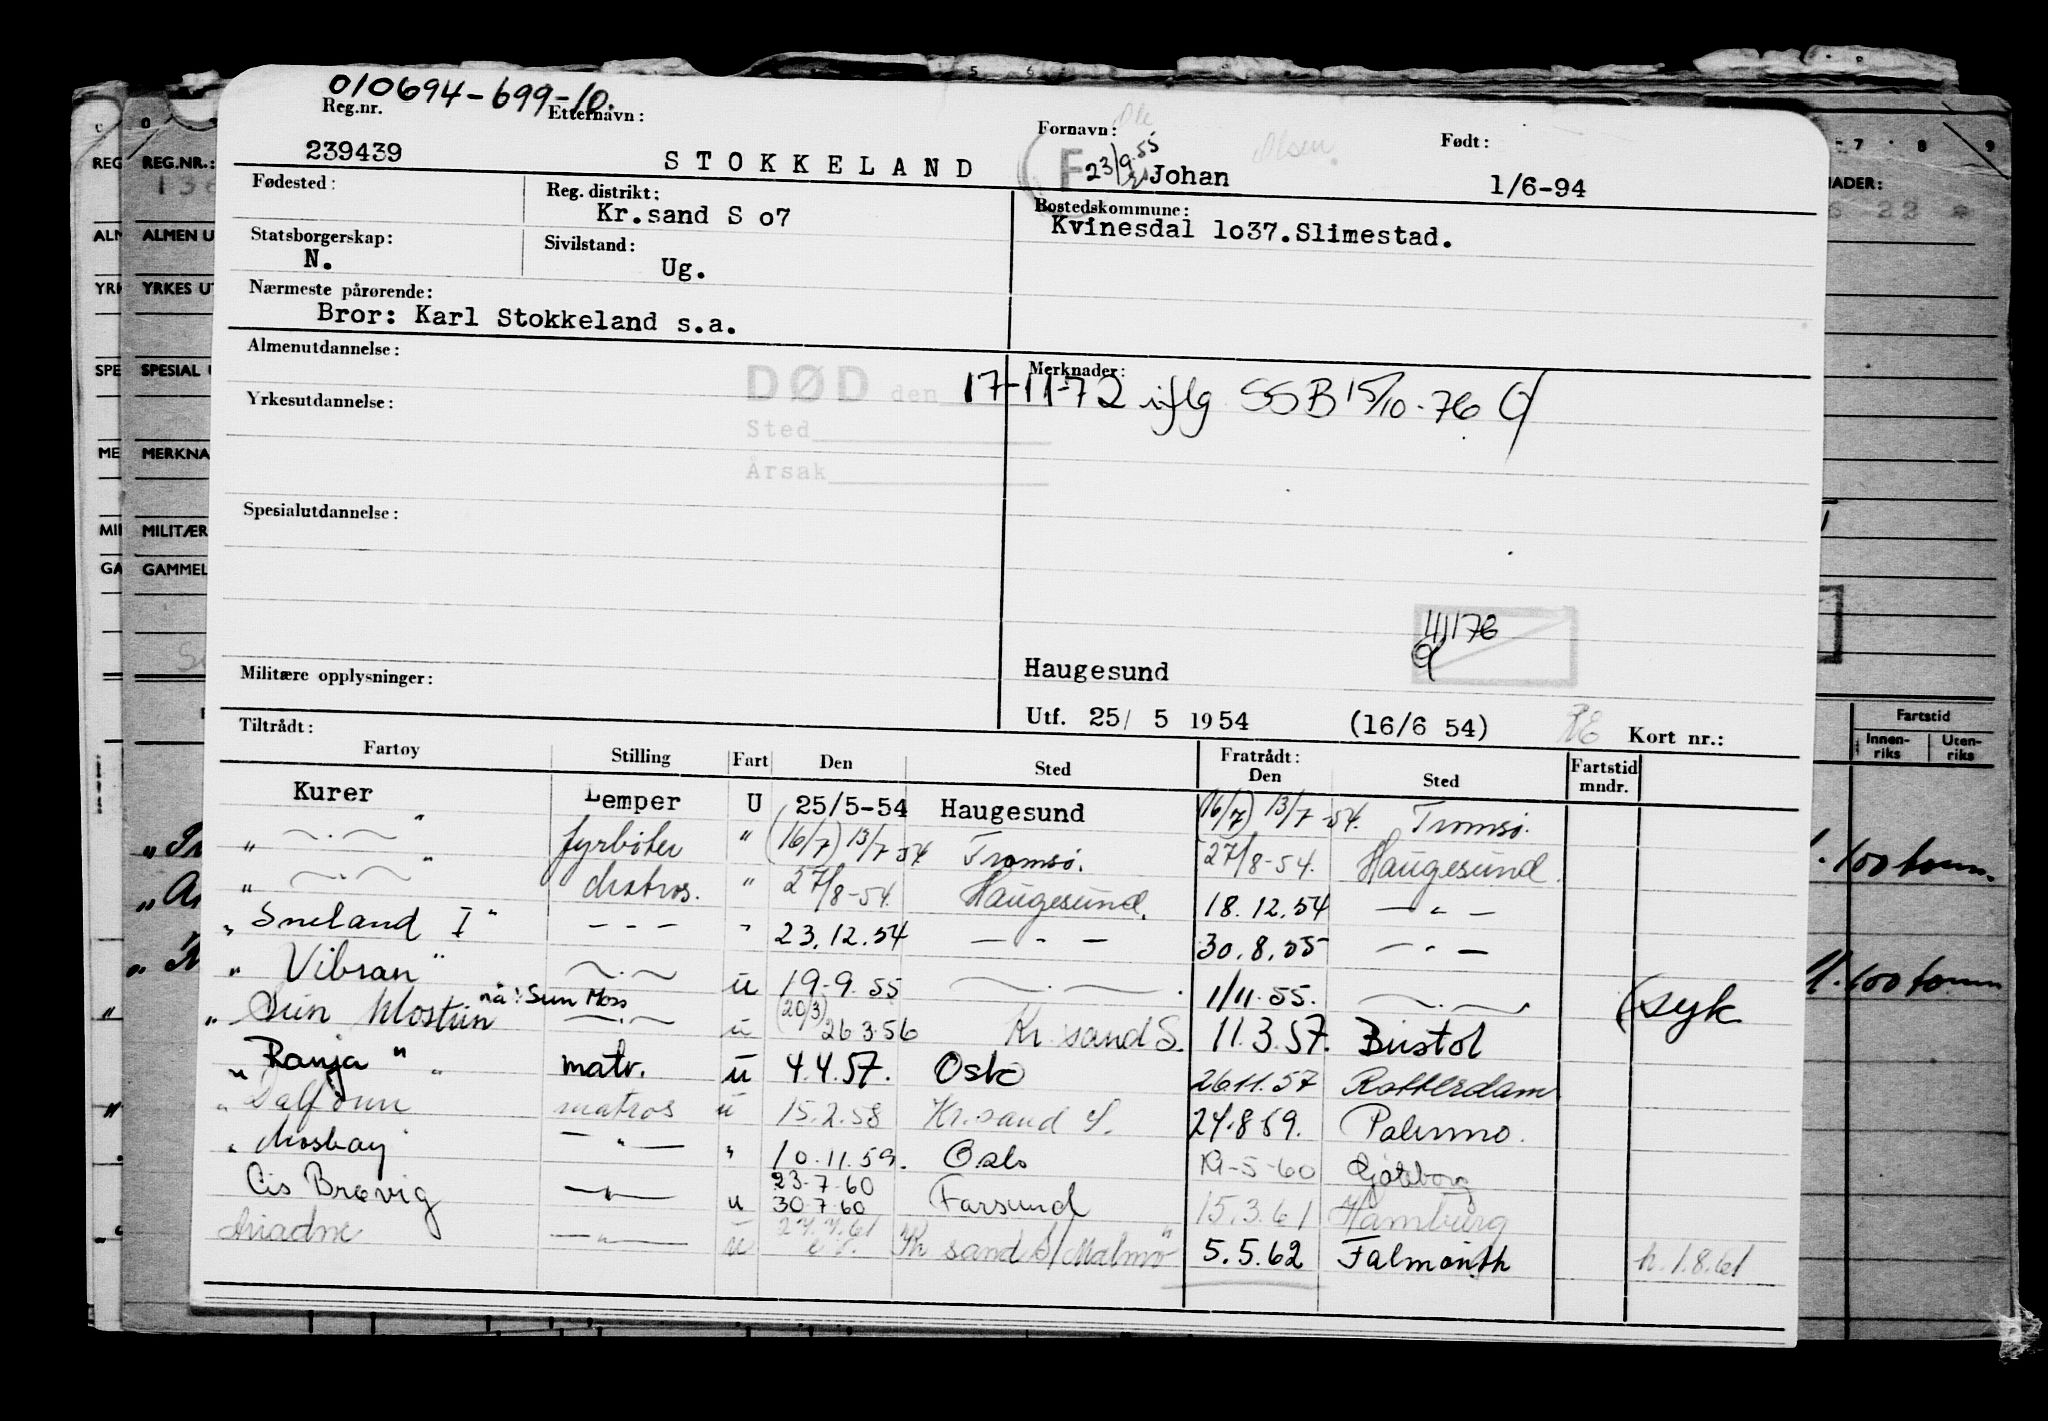 010694-699-10.
Reg.nr. Etternavn: Fornavn: Ole Olsen Født:
239439 STOKKELAND F 23/9.55 Johan 1/6-94
Fødested: Reg. distrikt: Bostedskommune:
Kr.sand S o7 Kvinesdal 1o37.Slimestad.
Statsborgerskap: Sivilstand:
N. Ug.
Nærmeste pårørende:
Bror: Karl Stokkeland s.a.
Almenutdannelse: Merknader:
DØD den 17-11-72 iflg SSB 15/10-76
Yrkesutdannelse:
Sted
Årsak
Spesialutdannelse:
4/1176
Haugesund
Militære opplysninger:
Utf. 25/ 5 1954 (16/6 54) Kort nr.:
Tiltrådt: Fratrådt:
Fartøy Stilling Fart Den Sted Den Sted Fartstid mndr.
Kurer Lemper U 25/5-54 Haugesund (16/7) 13/7-54. Tromsø.
" —·— " fyrbøter " (16/7) 13/7 54 Tromsø. 27/8-54. Haugesund.
" —·— " Matros. " 27/8-54. Haugesund. 18.12.54 — " —
" Sneland I " - - - " 23.12.54 — " — 30.8.55 — " —
" Vibran " —·— u 19-9.55 —·—. 1/11.55. —·—. (syk
" Sun Klostun nå: Sun Moss —·— u (20/3) 26 3.56 Kr. sand S. 11.3.57. Bristol
" Ranja " matr. u 4.4.57. Oslo 26.11.57 Rotterdam
" Dalfonn matros u 15.2.58 Kr.sand S. 24.8.59. Palermo.
" Mosbay " — " — " 10.11.59. Oslo 19-5-60 Gøteborg
Cis Brøvig — " — u 23.7.60 30.7.60 Farsund 15.3.61 Hamburg
Ariadne — " — u 27.7.61 Kr sand S/Malmø " 5.5.62 Falmouth h. 1.8.61
REG.NR.:
ALMEN U
YRKES UT
SPESIAL
MERKNA
MILITÆR
GAMMEL
NADER:
Fartstid
Innen-riks Uten-riks
100 tonn.
100 tonn